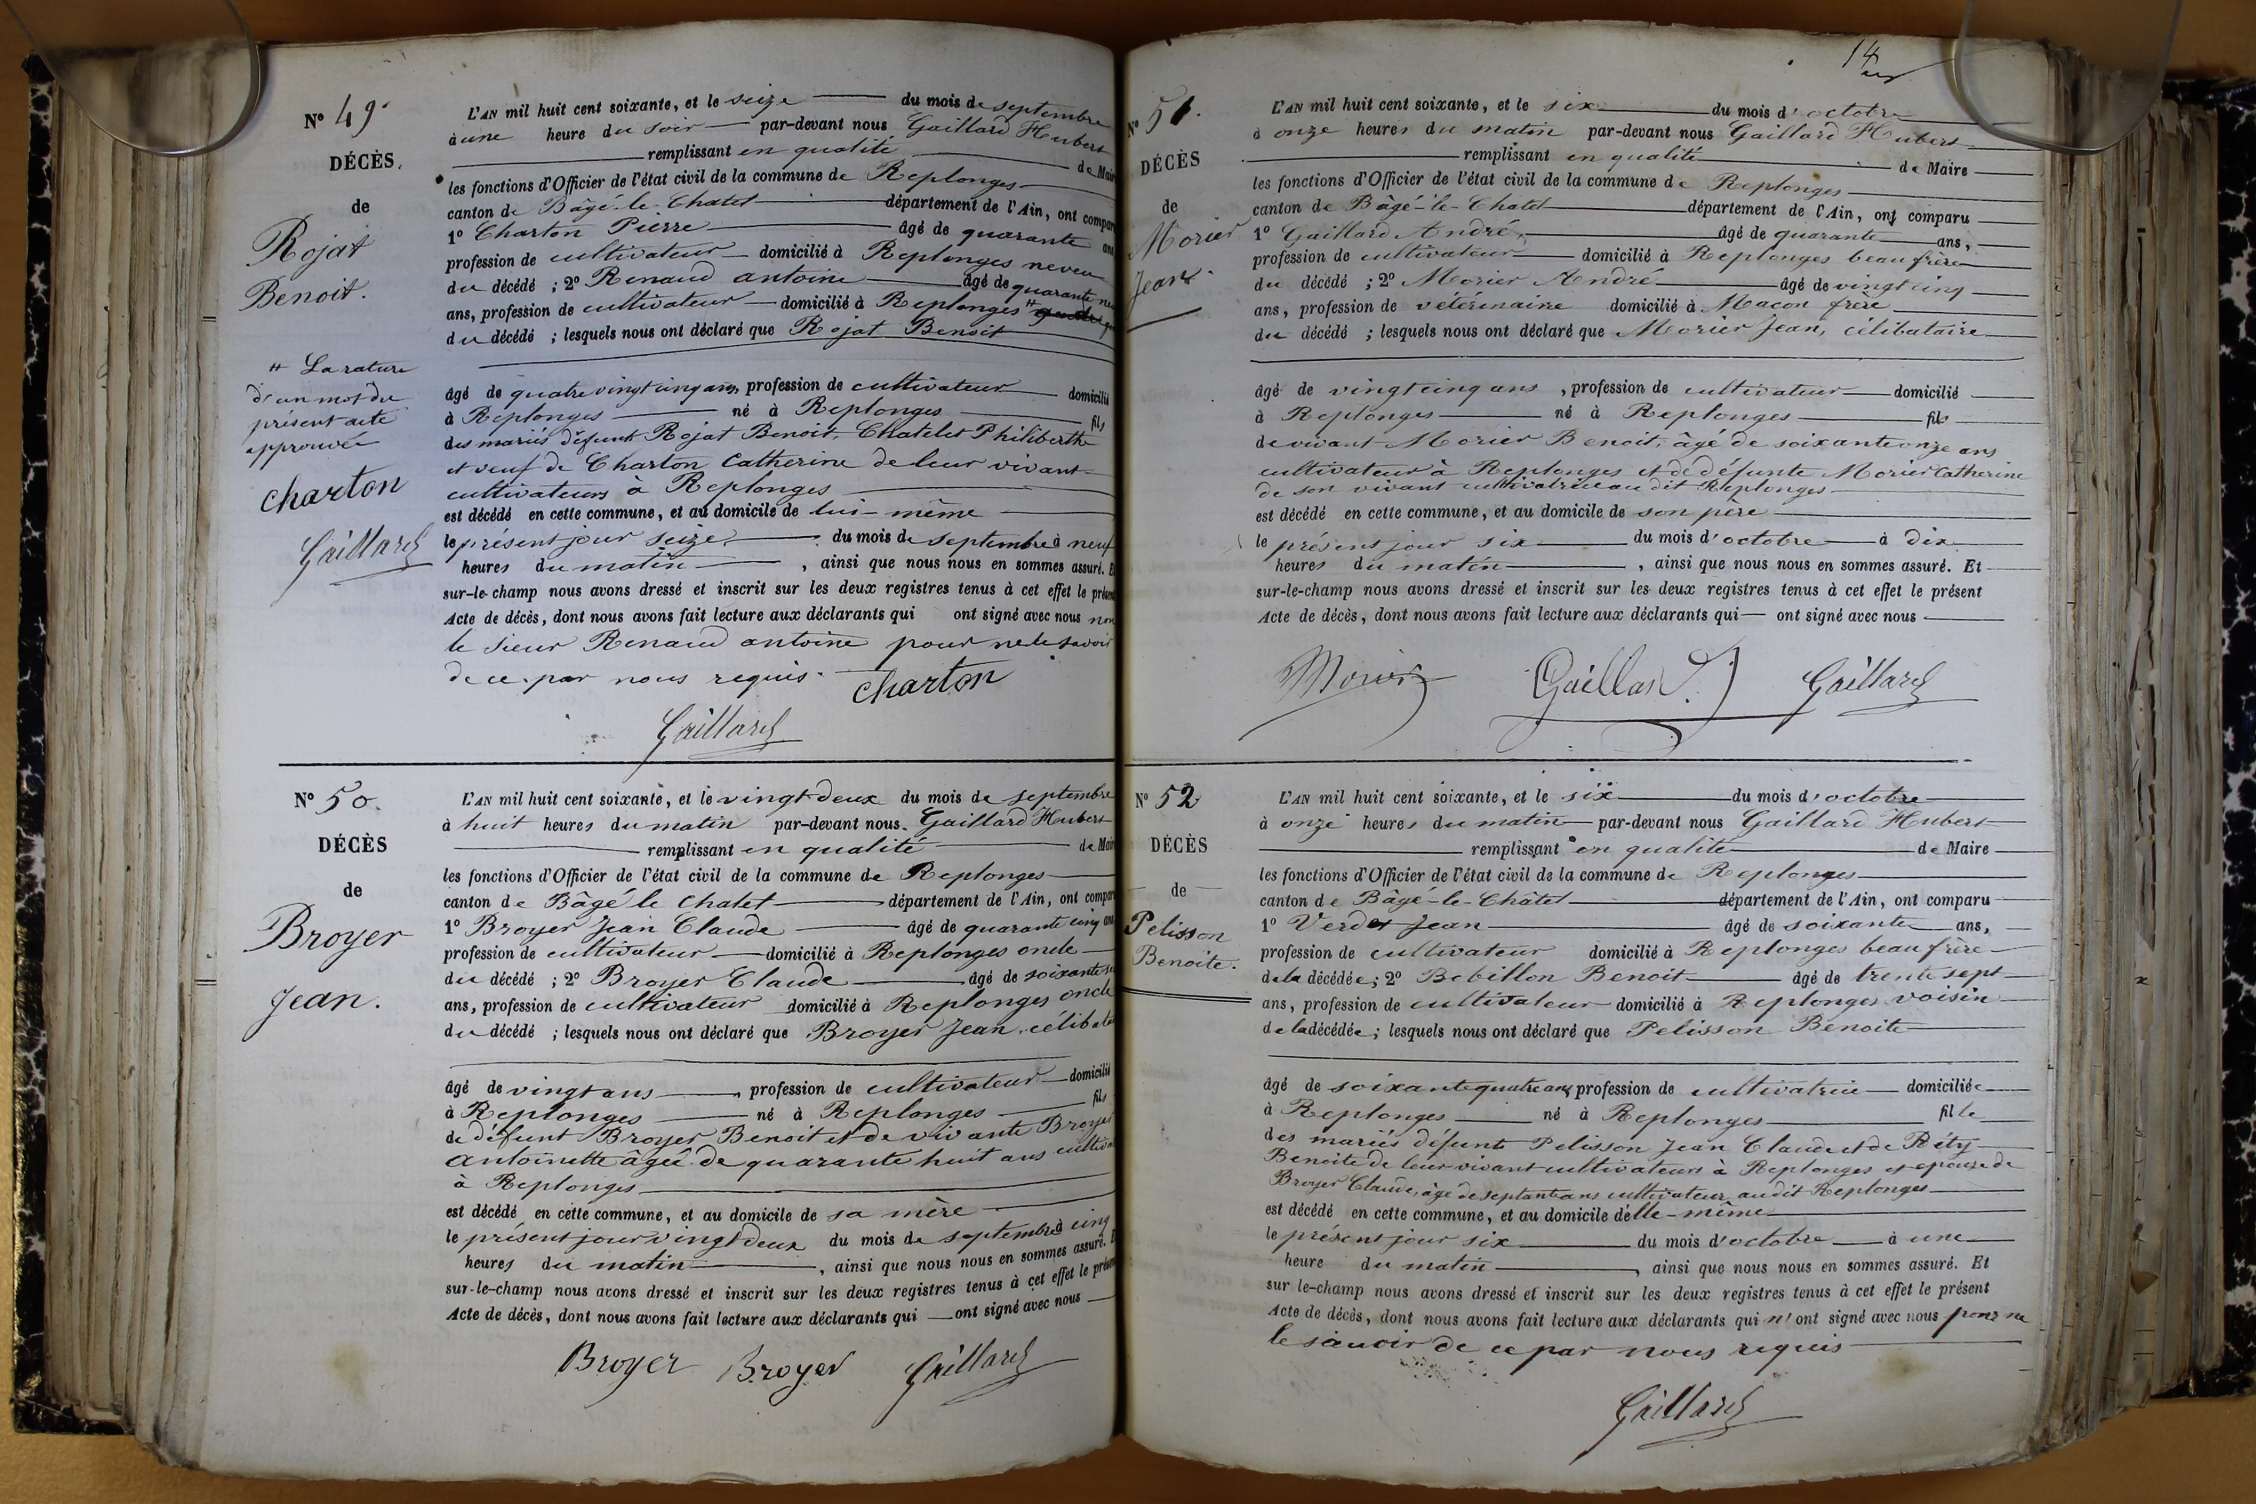 N° 49.
DÉCÈS.
de
Rojat
Benoit.
# La rature
d'un mot du
présent acte
approuvée
Charton
Gaillard
L'AN mil huit cent soixante, et le seize du mois de septembre
à une heure du soir par-devant nous Gaillard Hubert
remplissant en qualité de Maire
les fonctions d'Officier de l'état civil de la commune de Replonges
canton de Bâgé-le-Chatel département de l'Ain, ont comparu
1° Charton Pierre âgé de quarante ans
profession de cultivateur domicilié à Replonges neveu
du décédé ; 2° Renaud antoine âgé de quarante
ans, profession de cultivateur domicilié à Replonges #
du décédé ; lesquels nous ont déclaré que Rojat Benoit
âgé de quatre vingt cinq ans, profession de cultivateur domicilié
à Replonges né à Replonges fils
des mariés défunt Rojat Benoit, Chatelet Philiberthe
et veuf de Charton Catherine de leur vivant
cultivateurs à Replonges
est décédé en cette commune, et au domicile de lui-même
le présent jour seize du mois de septembre à neuf
heures du matin, ainsi que nous nous en sommes assuré. Et
sur-le-champ nous avons dressé et inscrit sur les deux registres tenus à cet effet le présent
Acte de décès, dont nous avons fait lecture aux déclarants qui ont signé avec nous non
le sieur Renaud antoine pour ne le savoir
de ce par nous requis. Charton
Gaillard
N° 50.
DÉCÈS
de
Broyer
Jean.
L'AN mil huit cent soixante, et le vingt-deux du mois de septembre
à huit heures du matin par-devant nous Gaillard Hubert
remplissant en qualité de Maire
les fonctions d'Officier de l'état civil de la commune de Replonges
canton de Bâgé le Chatel département de l'Ain, ont comparu
1° Broyer Jean Claude âgé de quarante cinq ans
profession de cultivateur domicilié à Replonges oncle
du décédé ; 2° Broyer Claude âgé de soixante
ans, profession de cultivateur domicilié à Replonges oncle
du décédé ; lesquels nous ont déclaré que Broyer Jean, célibataire
âgé de vingt ans, profession de cultivateur domicilié
à Replonges né à Replonges fils
de défunt Broyer Benoit et de vivante Broyer
Antoinette âgée de quarante huit ans cultiva
à Replonges
est décédé en cette commune, et au domicile de sa mère
le présent jour vingt deux du mois de septembre à cinq
heures du matin, ainsi que nous nous en sommes assuré. Et
sur-le-champ nous avons dressé et inscrit sur les deux registres tenus à cet effet le présent
Acte de décès, dont nous avons fait lecture aux déclarants qui ont signé avec nous
Broyer Broyer Gaillard
14
N° 51.
DÉCÈS
de
Morier
Jean.
L'AN mil huit cent soixante, et le six du mois d'octobre
à onze heures du matin par-devant nous Gaillard Hubert
remplissant en qualité de Maire
les fonctions d'Officier de l'état civil de la commune de Replonges
canton de Bâgé-le-Chatel département de l'Ain, ont comparu
1° Gaillard André, âgé de quarante ans,
profession de cultivateur domicilié à Replonges beau frère
du décédé ; 2° Morier André âgé de vingt cinq
ans, profession de vétérinaire domicilié à Macon frère
du décédé ; lesquels nous ont déclaré que Morier Jean, célibataire
âgé de vingt cinq ans, profession de cultivateur domicilié
à Replonges né à Replonges fils
de vivant Morier Benoit, âgé de soixante onze ans
cultivateur à Replonges et de défunte Morier Catherine
de son vivant cultivatrice au dit Replonges
est décédé en cette commune, et au domicile de son père
le présent jour six du mois d'octobre à dix
heures du matin, ainsi que nous nous en sommes assuré. Et
sur-le-champ nous avons dressé et inscrit sur les deux registres tenus à cet effet le présent
Acte de décès, dont nous avons fait lecture aux déclarants qui ont signé avec nous
Morier Gaillard Gaillard
N° 52
DÉCÈS
de
Pelisson
Benoite.
L'AN mil huit cent soixante, et le six du mois d'octobre
à onze heures du matin par-devant nous Gaillard Hubert
remplissant en qualité de Maire
les fonctions d'Officier de l'état civil de la commune de Replonges
canton de Bâgé-le-Châtel département de l'Ain, ont comparu
1° Jean âgé de soixante ans,
profession de cultivateur domicilié à Replonges beau frère
de la décédée ; 2° Bebillon Benoit âgé de trente sept
ans, profession de cultivateur domicilié à Replonges voisin
de la décédée ; lesquels nous ont déclaré que Pelisson Benoite
âgé de soixante quatre ans, profession de cultivatrice domiciliée
à Replonges né à Replonges fille
des mariés défunts Pelisson Jean Claude et de Réty
Benoite de leur vivant cultivateurs à Replonges et epouse de
Broyer Claude, âgé de septante ans cultivateur audit Replonges
est décédé en cette commune, et au domicile d'elle-même
le présent jour six du mois d'octobre à une
heure du matin, ainsi que nous nous en sommes assuré. Et
sur le-champ nous avons dressé et inscrit sur les deux registres tenus à cet effet le présent
Acte de décès, dont nous avons fait lecture aux déclarants qui n'ont signé avec nous pour ne
le savoir de ce par nous requis
Gaillard